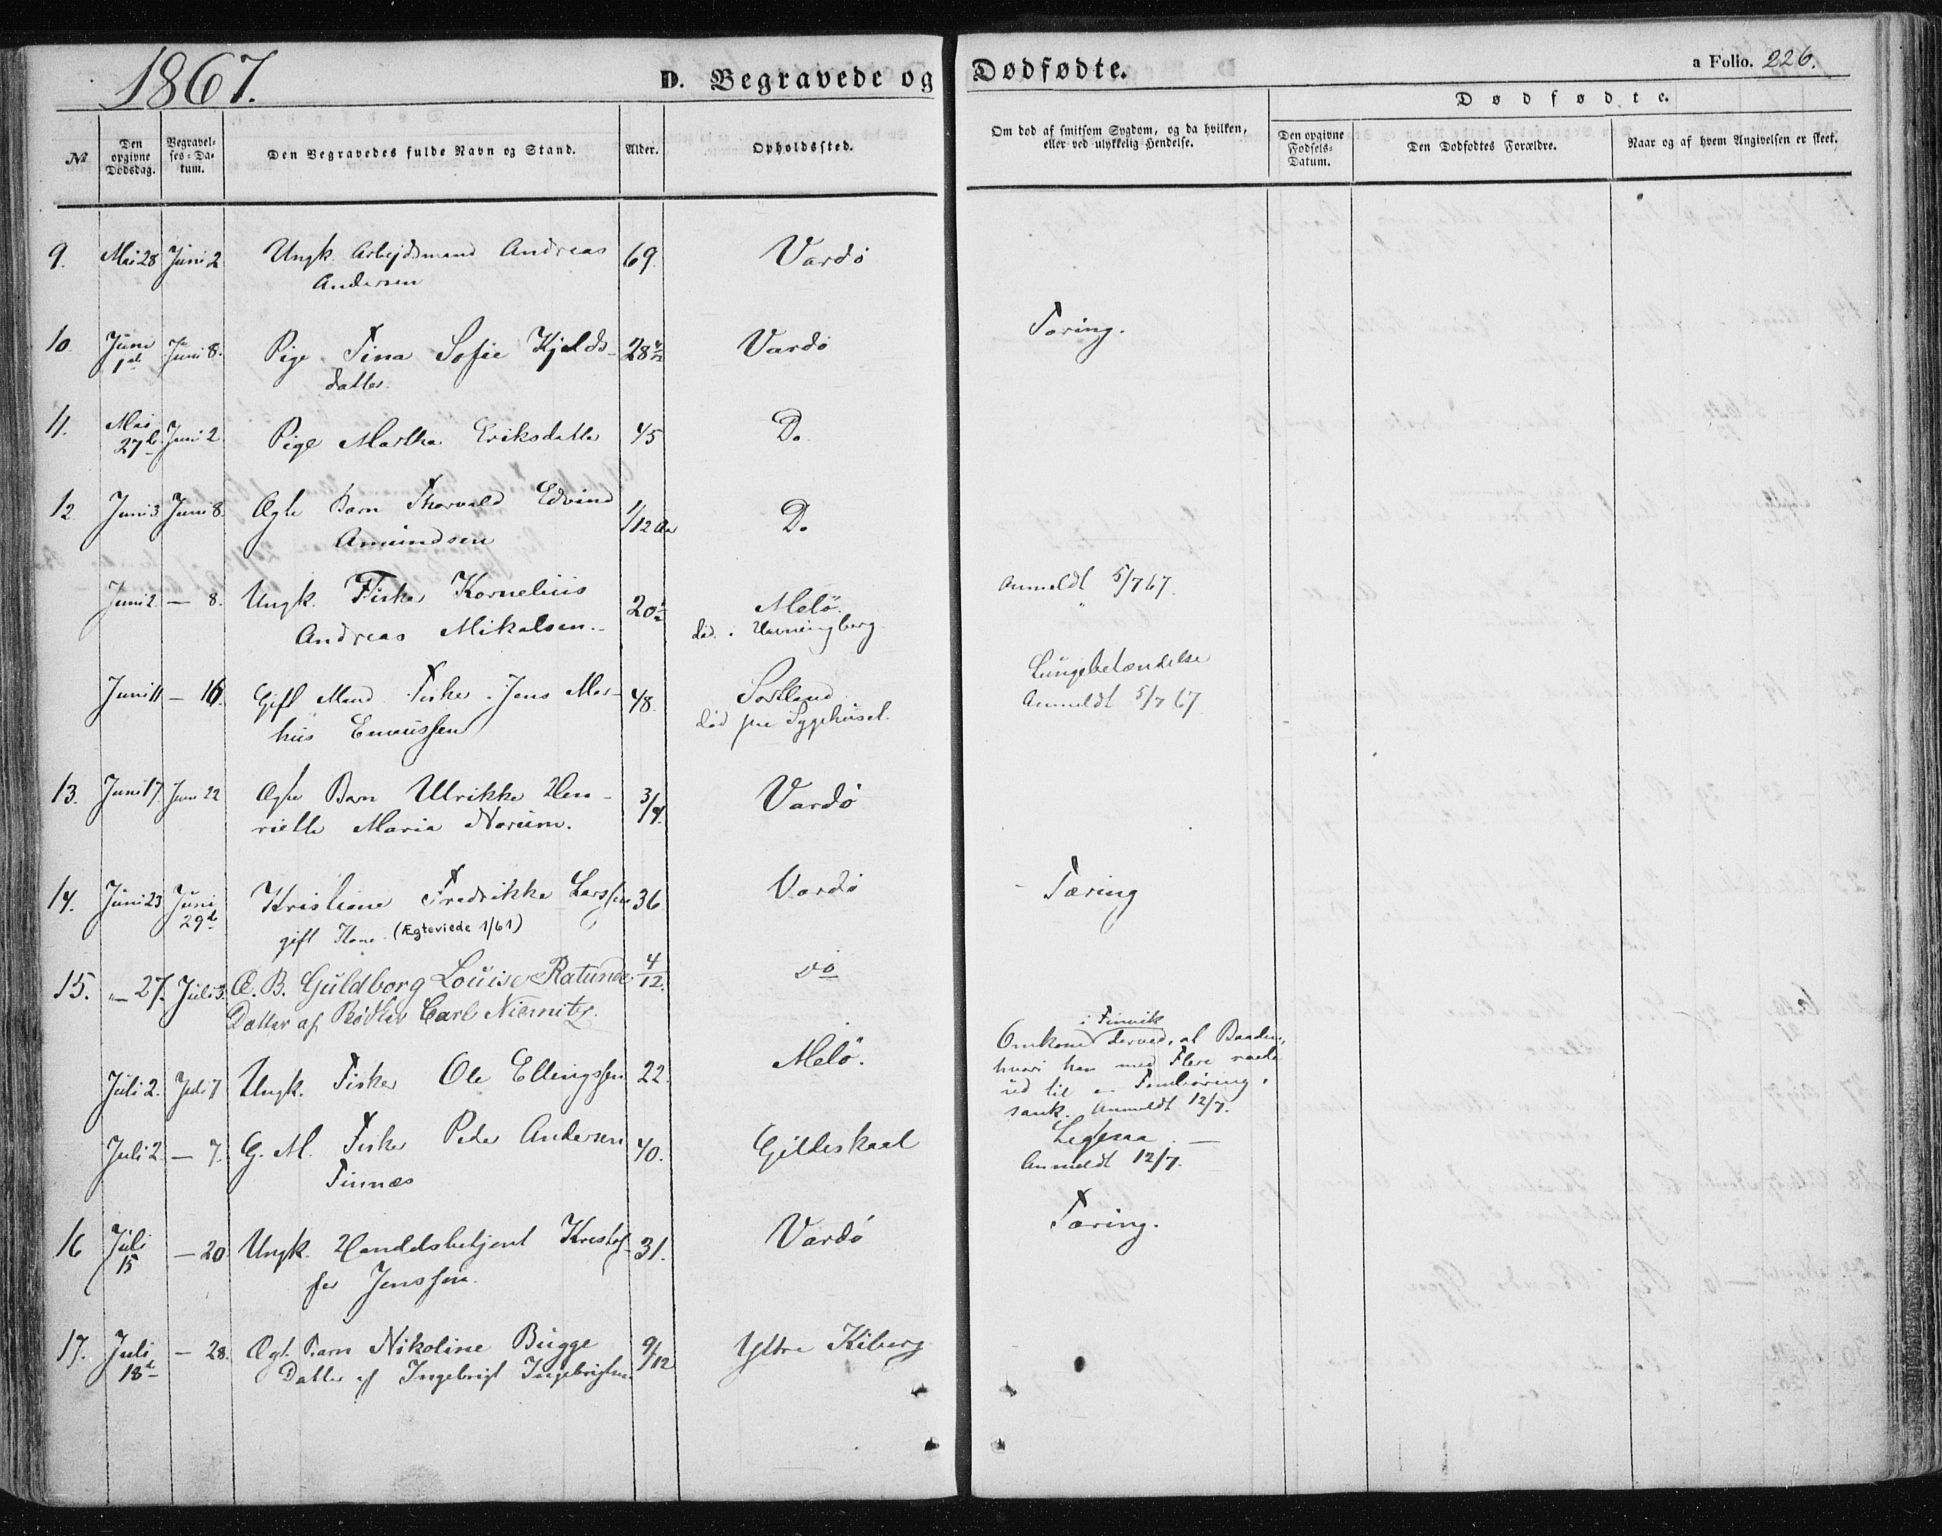 1867.
D. Begravede og Dødfødte.
a Folio. 226.
No.
Den opgivne Dødsdag.
Begravelses-Datum.
Den Begravedes fulde Navn og Stand.
Alder.
Opholdssted.
Om død af smitsom Sygdom, og da hvilken, eller ved ulykkelig Hendelse.
Dødfødte.
Den opgivne Fødsels-Datum.
Den Dødfødtes Forældre.
Naar og af hvem Angivelsen er skeet.
9. Mai 28 Juni 2 Ungk. Arbejdsmand Andreas 69. Vardö
Andersen
10. Juni Juni 8. Pige Tina Sofie Kjelds- 28 Vardö Tæring.
1st datter.
11. Mai Juni 2 Pige Martha Eriksdatter 45 Do
27de
12 Juni 3 Juni 8. Ægte Barn Thorvald Edvind 1/12 Aar Do
Amundsen
Juni 2 — 8. Ungk. Fisker Kornelius 20 Melö. Anmeldt 5/7 67.
Andreas Mikalsen. död i Havningberg.
Juni 11 — 16. Gift Mand Fisker Jens Mar- 48. Sortland Lungebetændelse
kus död paa Sygehuset. Anmeldt 5/7 67
13. Juni 17 Juni 22 Ægte Barn Ulrikke Hen- 3/4. Vardö
riette Maria Norum.
14. Juni 23 Juni Kristiane Fredrikke Larssen 36 Vardö Tæring
29de gift Kone. (Ægteviede 1/61)
15. " — 27. Juli 3. Æ. B. Guldborg Louise Ratunde 4/12. do
Datter af Bödker Carl Niemitz.
Juli 2. Juli 7 Ungk. Fisker Ole Ellingssen 22. Melö. Omkom i Finvik derved, at Baaden,
hvori han med Flere roede
ud til en Fembøring,
sank. Anmeldt 12/7.
Juli 2 — 7. G. M. Fisker Peder Andersen 40. Gildeskaal Ligesaa —
Finnæs Anmeldt 12/7.
16 Juli — 20 Ungk. Handelsbetjent Kristof- 31. Vardö Tæring.
15 fer Jenssen.
17. Juli — 28. Ægt. Barn Nikoline Bugge 9/12 Yttre Kiberg
18de Datter af Ingebrigt Ingebrigtsen